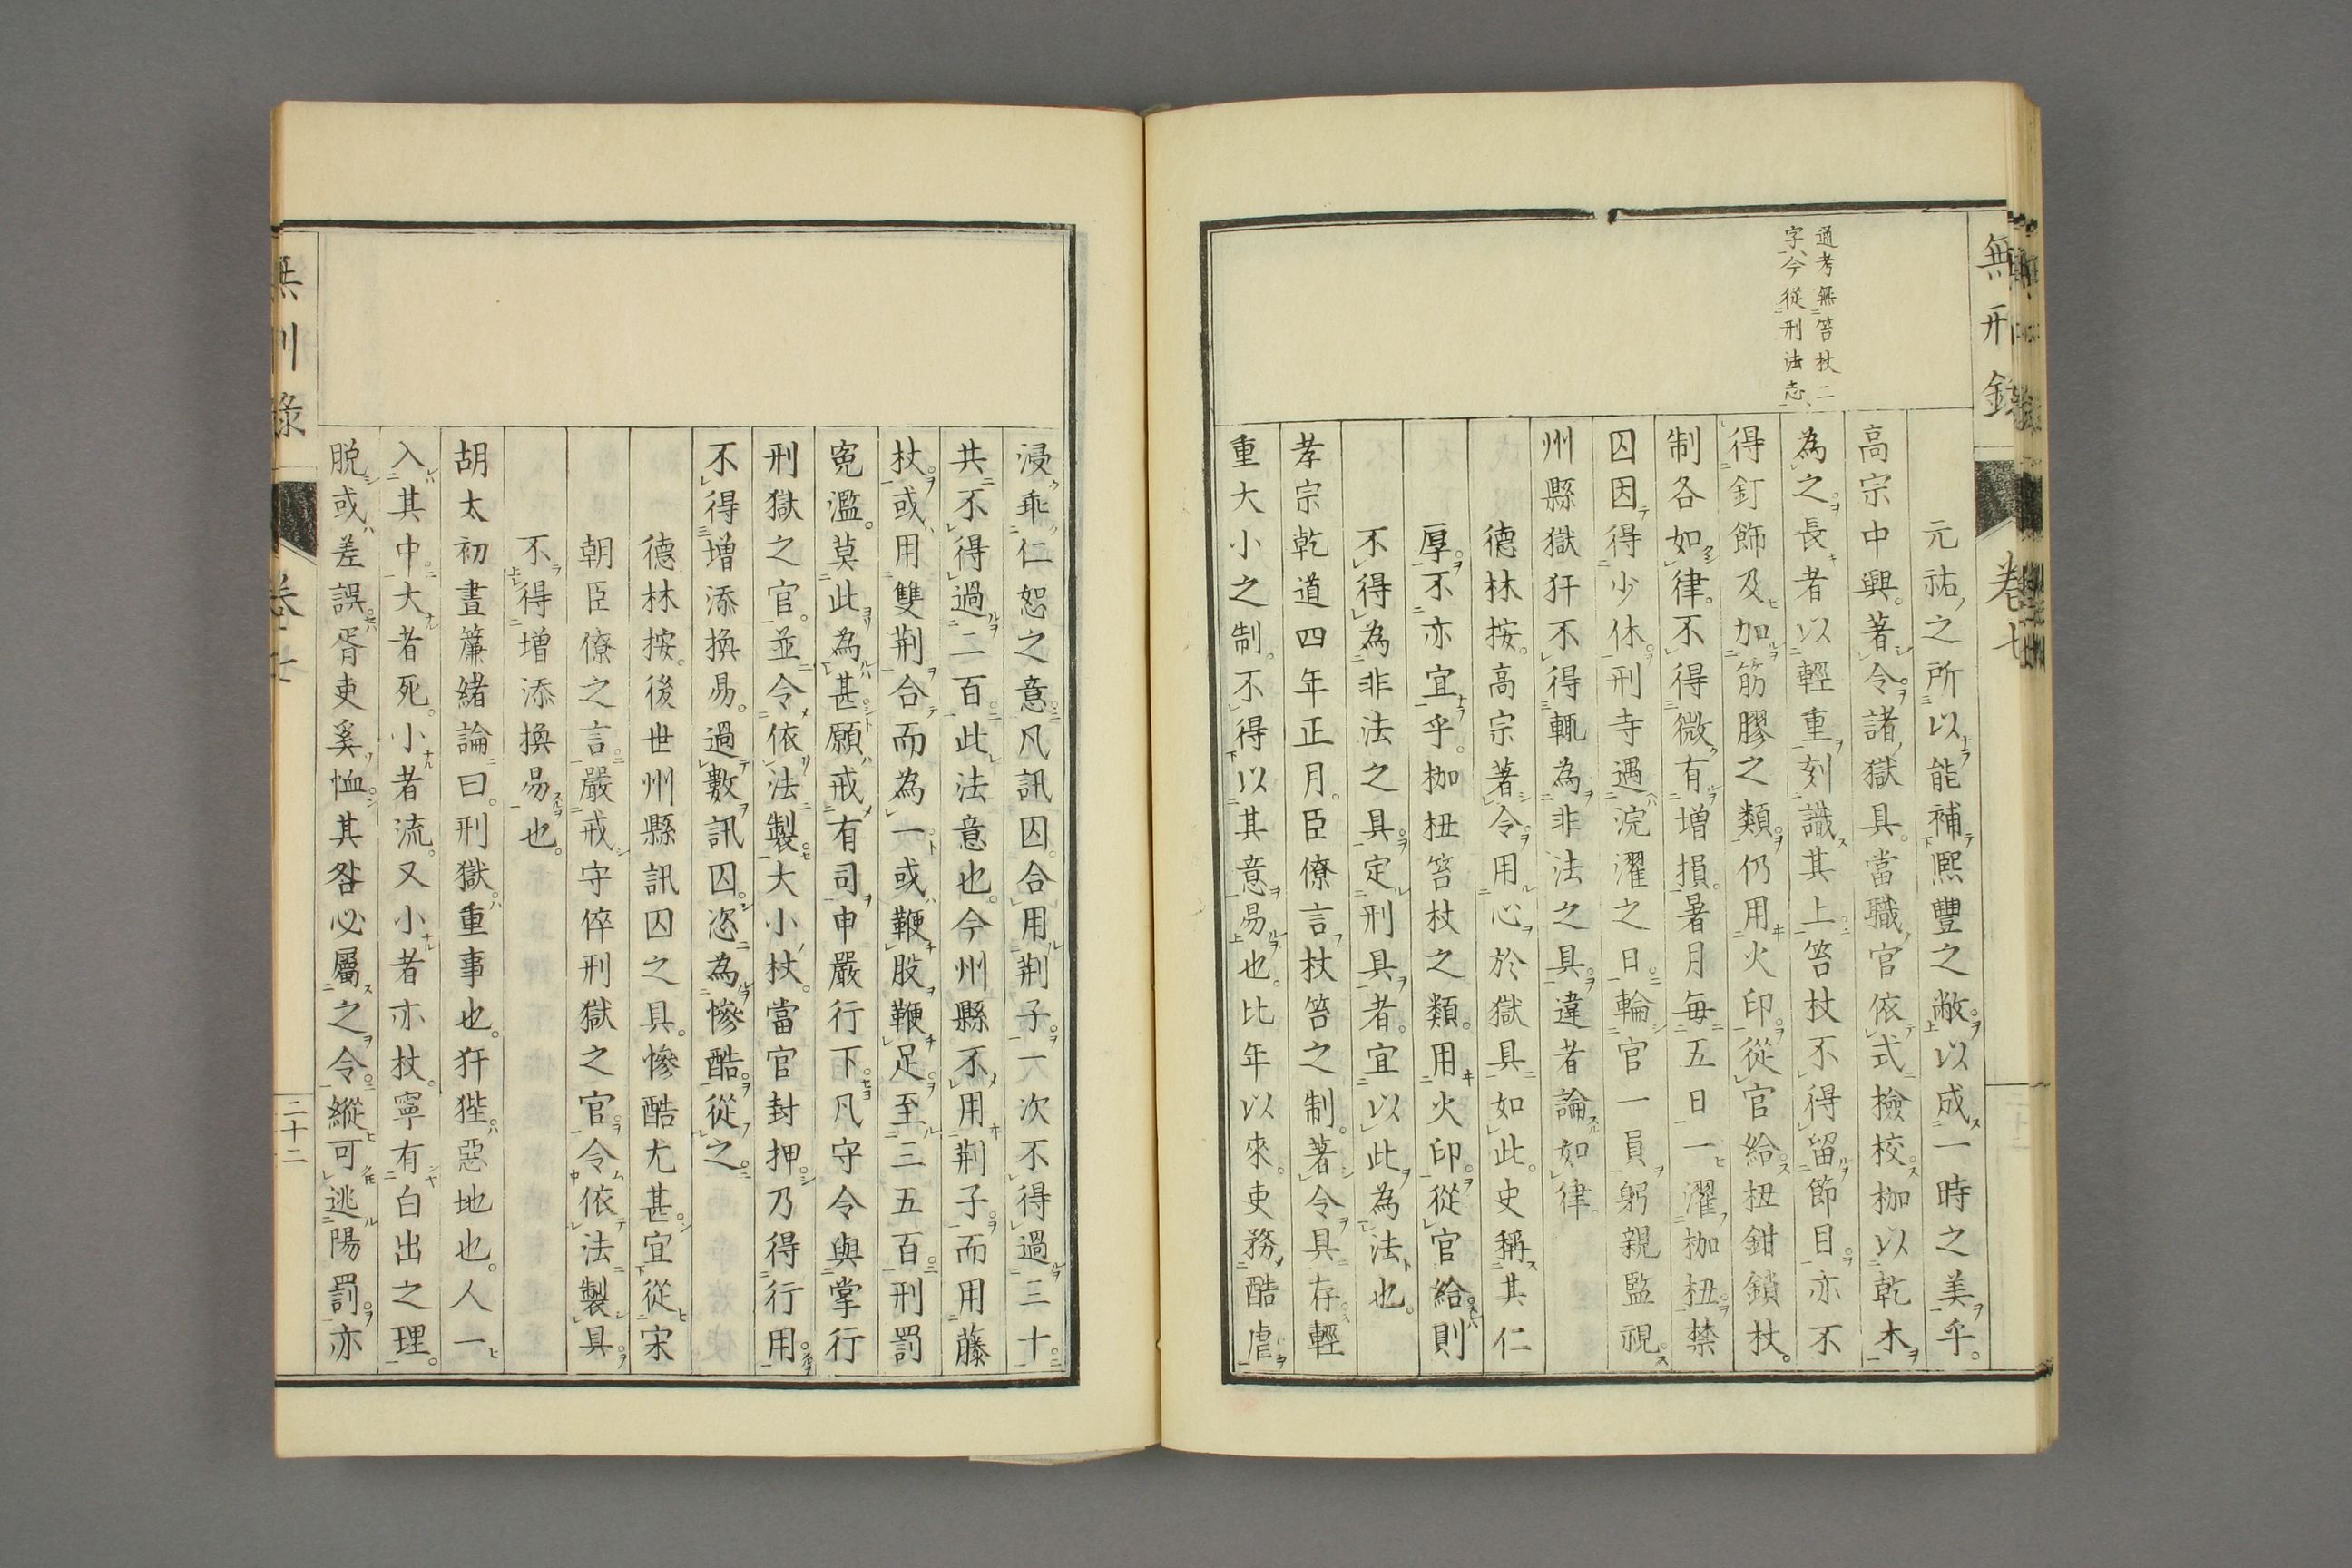 無刑録
卷七
通考無笞杖二
字今從刑法志
元祐之所以能補熙豐之敝以成一時之美乎。
高宗中興。著令諸獄具。當職官依式檢校枷以乾木
為之。長者以輕重刻識其上笞杖不得留節目。亦不
得釘飾及加筋膠之類。仍用火印。從官給杻鉗鎖杖。
制各如律。不得微有增損。暑月每五日一濯枷杻。禁
囚因得少休。刑寺遇浣濯之日。輪官一員躬親監視。
州縣獄犴不得輒為非法之具。違者論如律。
德林按。高宗著令。用心於獄具如此。史稱其仁
厚。不亦宜乎。枷杻笞杖之類。用火印。從官給。則
不得為非法之具。定刑具者。宜以此為法也。
孝宗乾道四年正月。臣僚言。杖笞之制。著令具存。輕
重大小之制。不得以其意易也。比年以來。吏務酷虐。
浸乖仁恕之意。凡訊囚。合用荊子。一次不得過三十。
共不得過二百。此法意也。今州縣不用荊子。而用藤
杖。或用雙荊合而為一。或鞭股鞭足。至三五百。刑罰
寃濫。莫此為甚。願戒有司。申嚴行下。凡守令與掌行
刑獄之官。並令依法製大小杖。當官封押。乃得行用。
不得增添換易。過數訊囚。恣為慘酷。從之。
德林按。後世州縣訊囚之具。慘酷尤甚。宜從宋
朝臣僚之言。嚴戒守倅刑獄之官。令依法製具。
不得增添換易也。
胡太初晝簾緒論曰。刑獄。重事也。犴狴。惡地也。人一
入其中。大者死。小者流。又小者亦杖。寧有白出之理。
脱或差誤。胥吏奚恤。其咎必屬之令。縱可逃陽罰。亦
二十二
無刑録
卷七